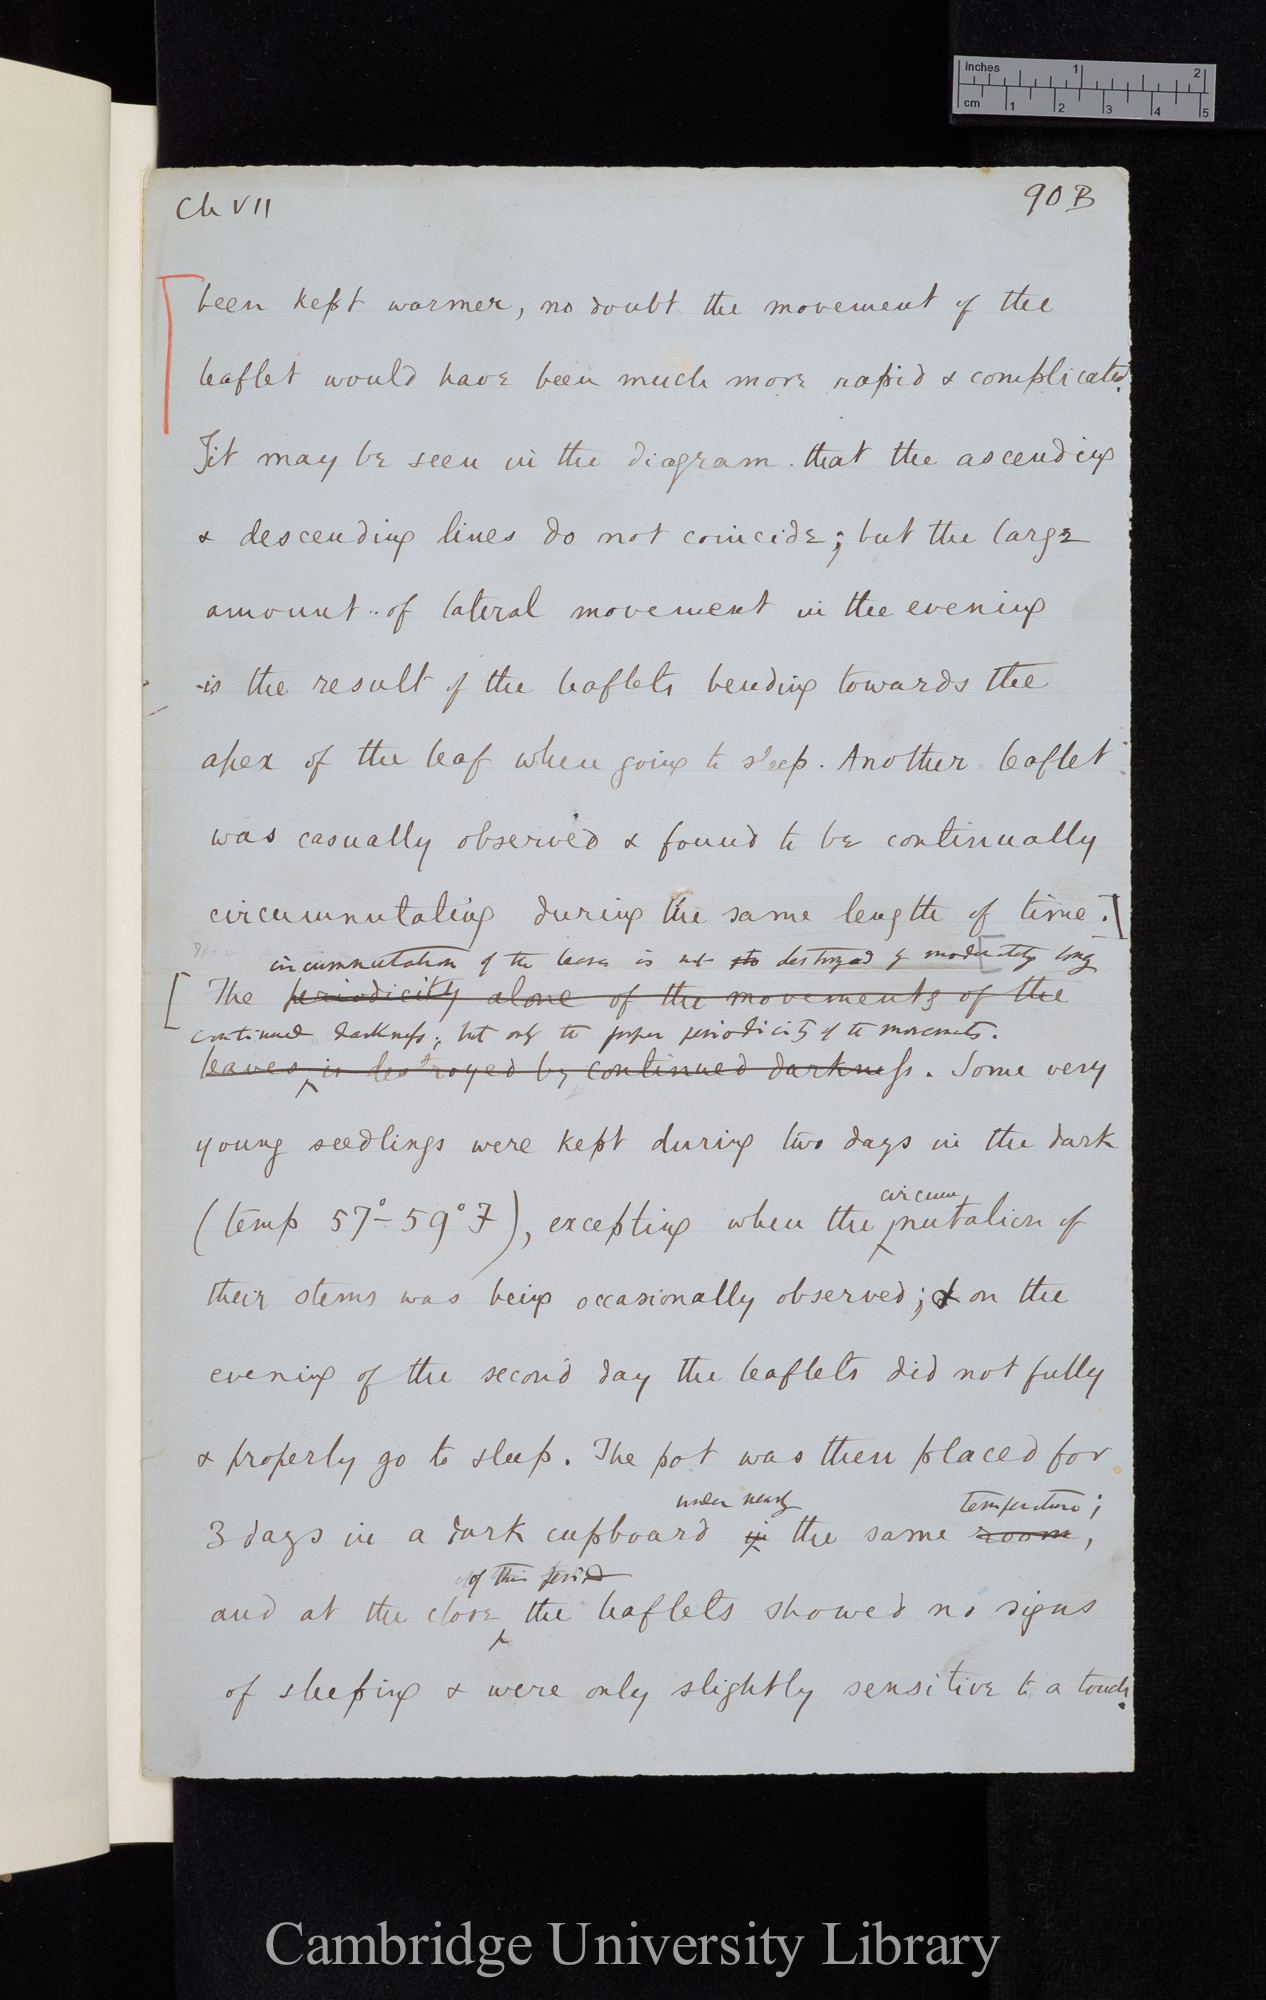 Inches 1 2
cm 1 2 3 4 5
Ch VII
90 B
been kept warmer, no doubt the movement of the
leaflet would have been much more rapid & complicated.
It may be seen in the diagram that the ascending
& descending lines do not coincide; but the large
amount of lateral movement in the evening
is the result of the leaflets bending towards the
apex of the leaf when going to sleep. Another leaflet
was casually observed & found to be continually
circumnutating during the same length of time.]
circumnutation of the leaves is not destroyed by moderately long
[The periodicity alone of the movements of the
continued darkness; but only the proper periodicity of the movements.
leaves is destroyed by continued darkness. Some very
young seedlings were kept during two days in the dark
circum
(temp 57°–59° F), excepting when the nutation of
their stems was being occasionally observed; & on the
evening of the second day the leaflets did not fully
& properly go to sleep. The pot was then placed for
under nearly temperature;
3 days in a dark cupboard in the same room,
of this period
and at the close the leaflets showed no signs
of sleeping & were only slightly sensitive to a touch.
Cambridge University Library